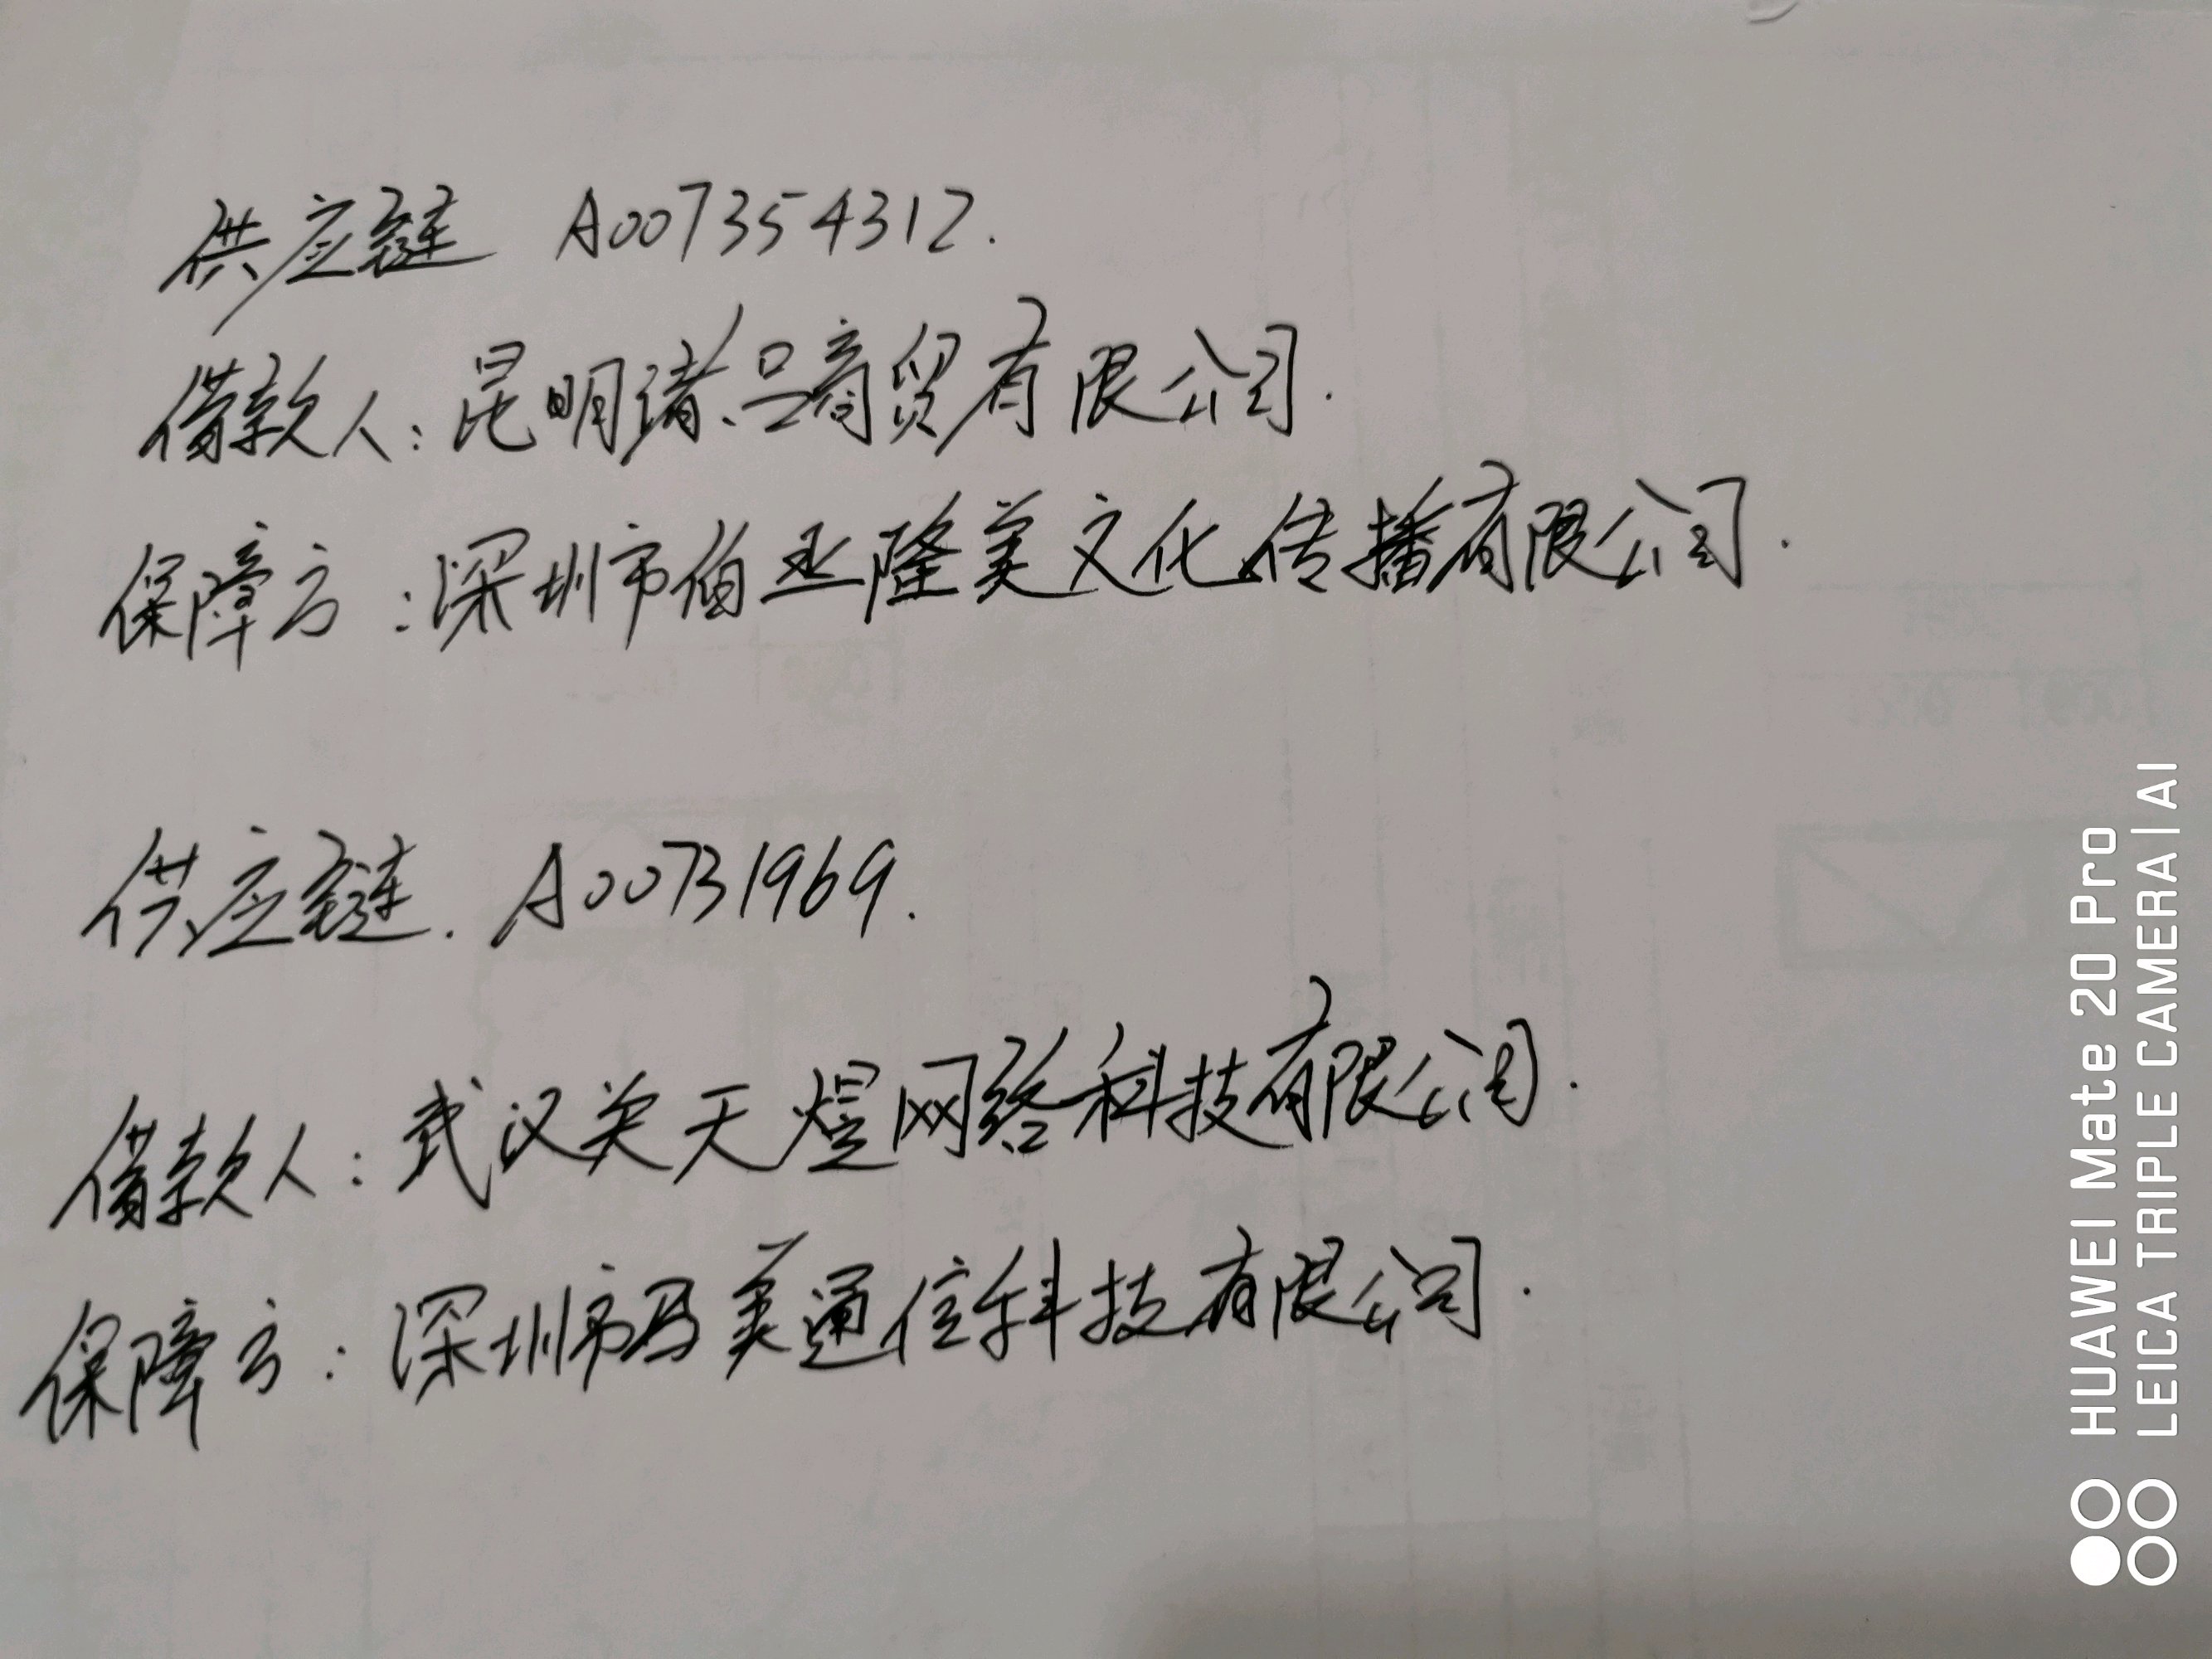 供应链 A007354312.
借款人:昆明诸品商贸有限公司.
保障方:深圳市伯丞隆美文化传播有限公司.
供应链. A00731969.
借款人:武汉关天煜网络科技有限公司.
保障方:深圳市马美通信科技有限公司.
HUAWEI Mate 20 Pro
LEICA TRIPLE CAMERA | AI